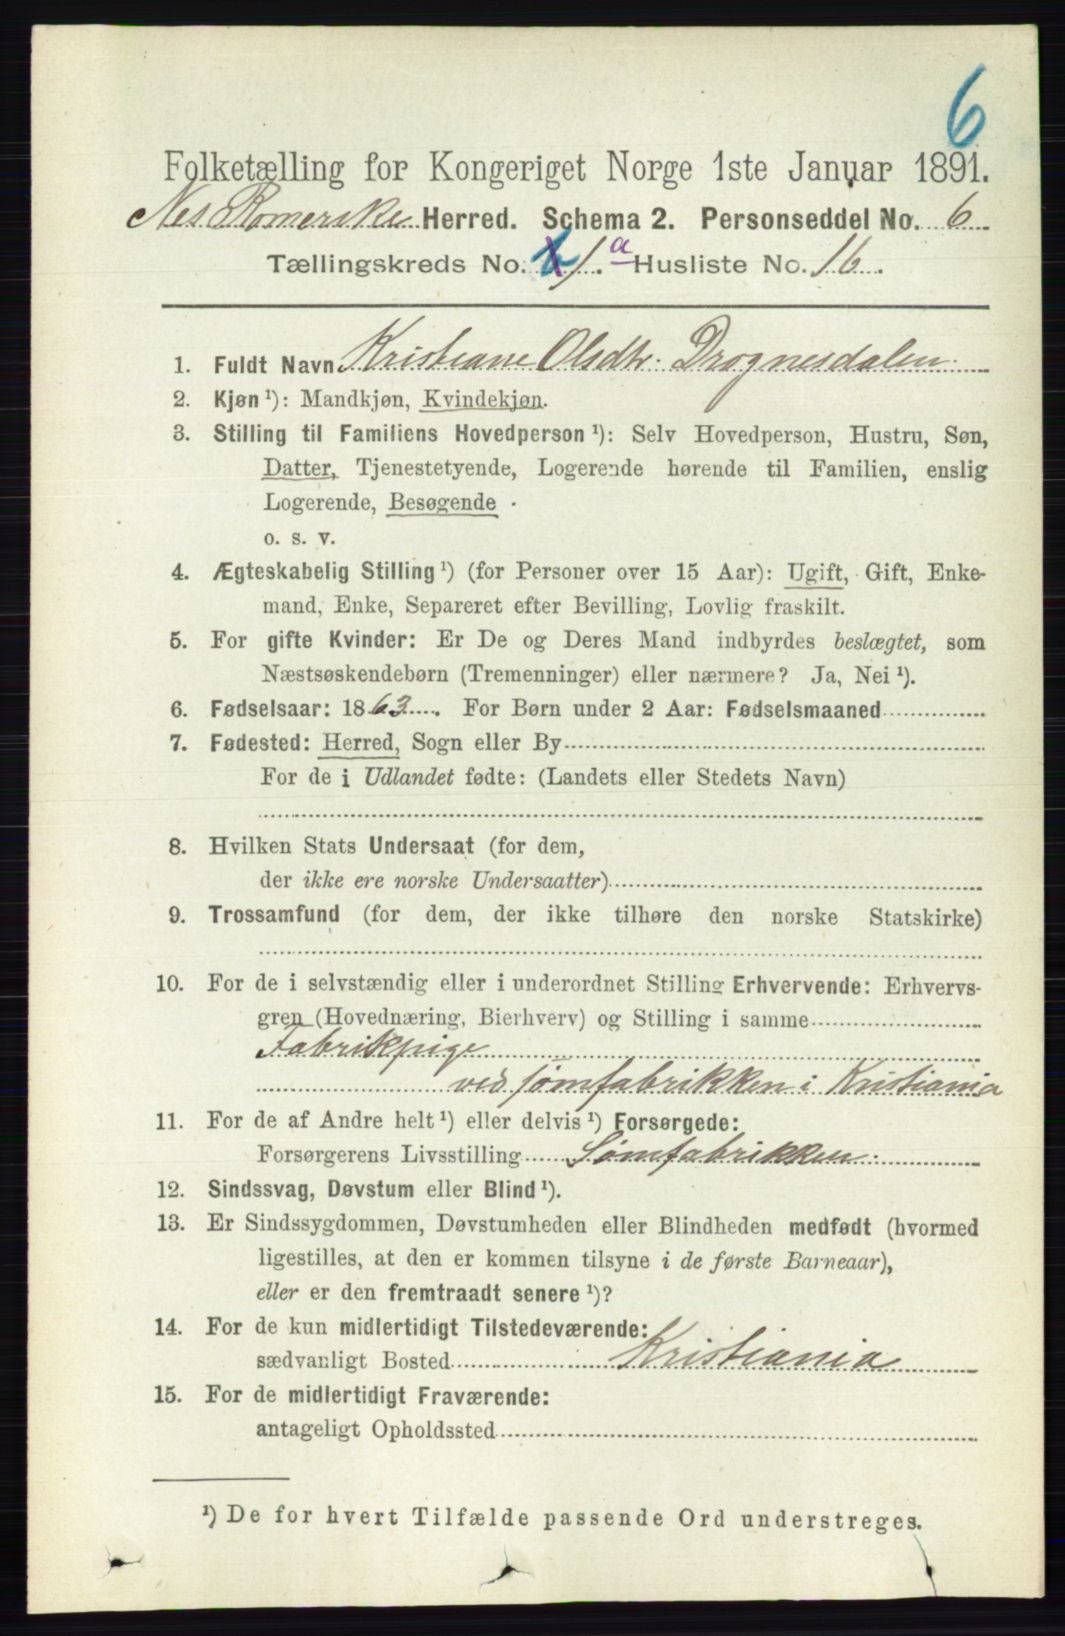 6
Folketælling for Kongeriget Norge 1ste Januar 1891.
Nes Romerike Herred. Schema 2. Personseddel No. 6
Tællingskreds No. 1.a Husliste No. 16.
1. Fuldt Navn Kristiane Olsdtr. Drognesdalen.
2. Kjøn ¹): Mandkjøn, Kvindekjøn.
3. Stilling til Familiens Hovedperson ¹): Selv Hovedperson, Hustru, Søn,
Datter, Tjenestetyende, Logerende hørende til Familien, enslig
Logerende, Besøgende .
o. s. v.
4. Ægteskabelig Stilling ¹) (for Personer over 15 Aar): Ugift, Gift, Enke-
mand, Enke, Separeret efter Bevilling, Lovlig fraskilt.
5. For gifte Kvinder: Er De og Deres Mand indbyrdes beslægtet, som
Næstsøskendebørn (Tremenninger) eller nærmere? Ja, Nei ¹).
6. Fødselsaar: 1863. For Børn under 2 Aar: Fødselsmaaned
7. Fødested: Herred, Sogn eller By
For de i Udlandet fødte: (Landets eller Stedets Navn)
8. Hvilken Stats Undersaat (for dem,
der ikke ere norske Undersaatter)
9. Trossamfund (for dem, der ikke tilhøre den norske Statskirke)
10. For de i selvstændig eller i underordnet Stilling Erhvervende: Erhvervs-
gren (Hovednæring, Bierhverv) og Stilling i samme
Fabrikpige
ved sømfabrikken i Kristiania
11. For de af Andre helt ¹) eller delvis ¹) Forsørgede:
Forsørgerens Livsstilling Sømfabrikken.
12. Sindssvag, Døvstum eller Blind ¹).
13. Er Sindssygdommen, Døvstumheden eller Blindheden medfødt (hvormed
ligestilles, at den er kommen tilsyne i de første Barneaar),
eller er den fremtraadt senere ¹)?
14. For de kun midlertidigt Tilstedeværende:
sædvanligt Bosted Kristiania
15. For de midlertidigt Fraværende:
antageligt Opholdssted
¹) De for hvert Tilfælde passende Ord understreges.